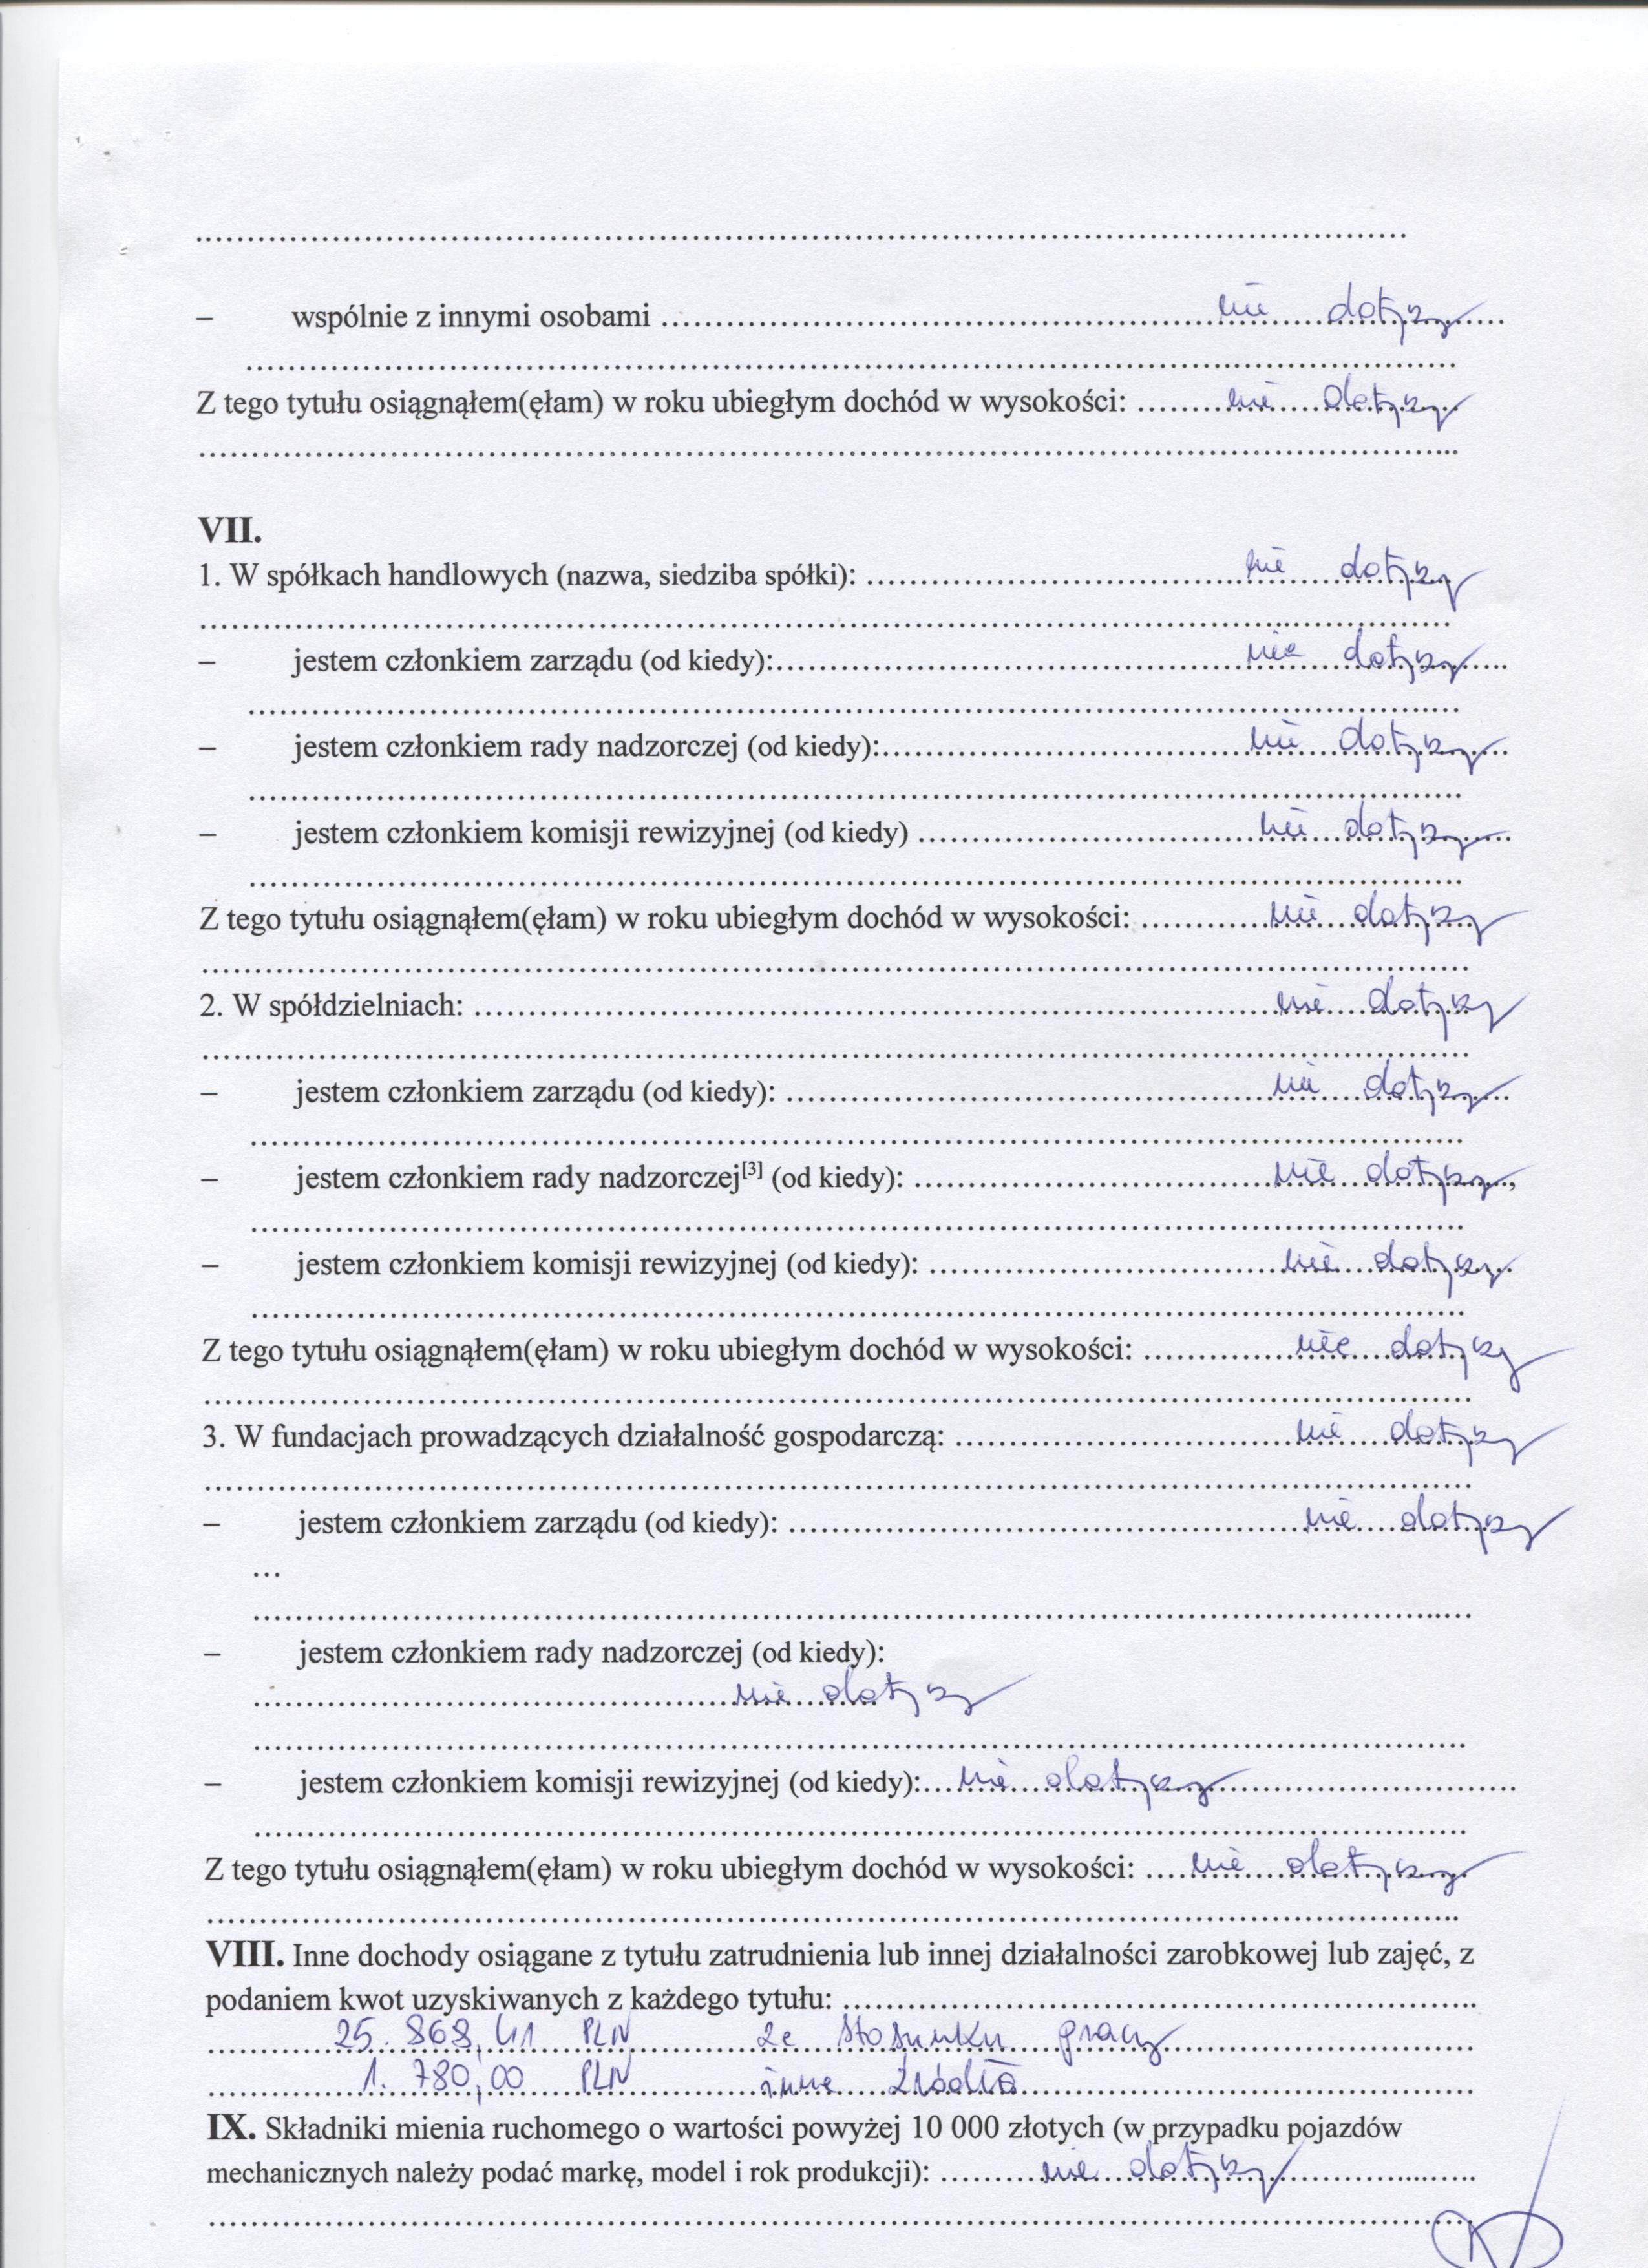 – wspólnie z innymi osobami ........ nie dotyczy
Z tego tytułu osiągnąłem(ęłam) w roku ubiegłym dochód w wysokości: ........ nie dotyczy
VII.
1. W spółkach handlowych (nazwa, siedziba spółki): ........ nie dotyczy
– jestem członkiem zarządu (od kiedy):........ nie dotyczy
– jestem członkiem rady nadzorczej (od kiedy):........ nie dotyczy
– jestem członkiem komisji rewizyjnej (od kiedy) ........ nie dotyczy
Z tego tytułu osiągnąłem(ęłam) w roku ubiegłym dochód w wysokości: ........ nie dotyczy
2. W spółdzielniach: ........ nie dotyczy
– jestem członkiem zarządu (od kiedy): ........ nie dotyczy
– jestem członkiem rady nadzorczej[3] (od kiedy): ........ nie dotyczy,
– jestem członkiem komisji rewizyjnej (od kiedy): ........ nie dotyczy
Z tego tytułu osiągnąłem(ęłam) w roku ubiegłym dochód w wysokości: ........ nie dotyczy
3. W fundacjach prowadzących działalność gospodarczą: ........ nie dotyczy
– jestem członkiem zarządu (od kiedy): ........ nie dotyczy
...
– jestem członkiem rady nadzorczej (od kiedy):
........ nie dotyczy
– jestem członkiem komisji rewizyjnej (od kiedy):... nie dotyczy ........
Z tego tytułu osiągnąłem(ęłam) w roku ubiegłym dochód w wysokości: .... nie dotyczy
VIII. Inne dochody osiągane z tytułu zatrudnienia lub innej działalności zarobkowej lub zajęć, z
podaniem kwot uzyskiwanych z każdego tytułu: ........
25.868,41 PLN ze stosunku pracy
1.780,00 PLN inne źródła
IX. Składniki mienia ruchomego o wartości powyżej 10 000 złotych (w przypadku pojazdów
mechanicznych należy podać markę, model i rok produkcji): ........ nie dotyczy